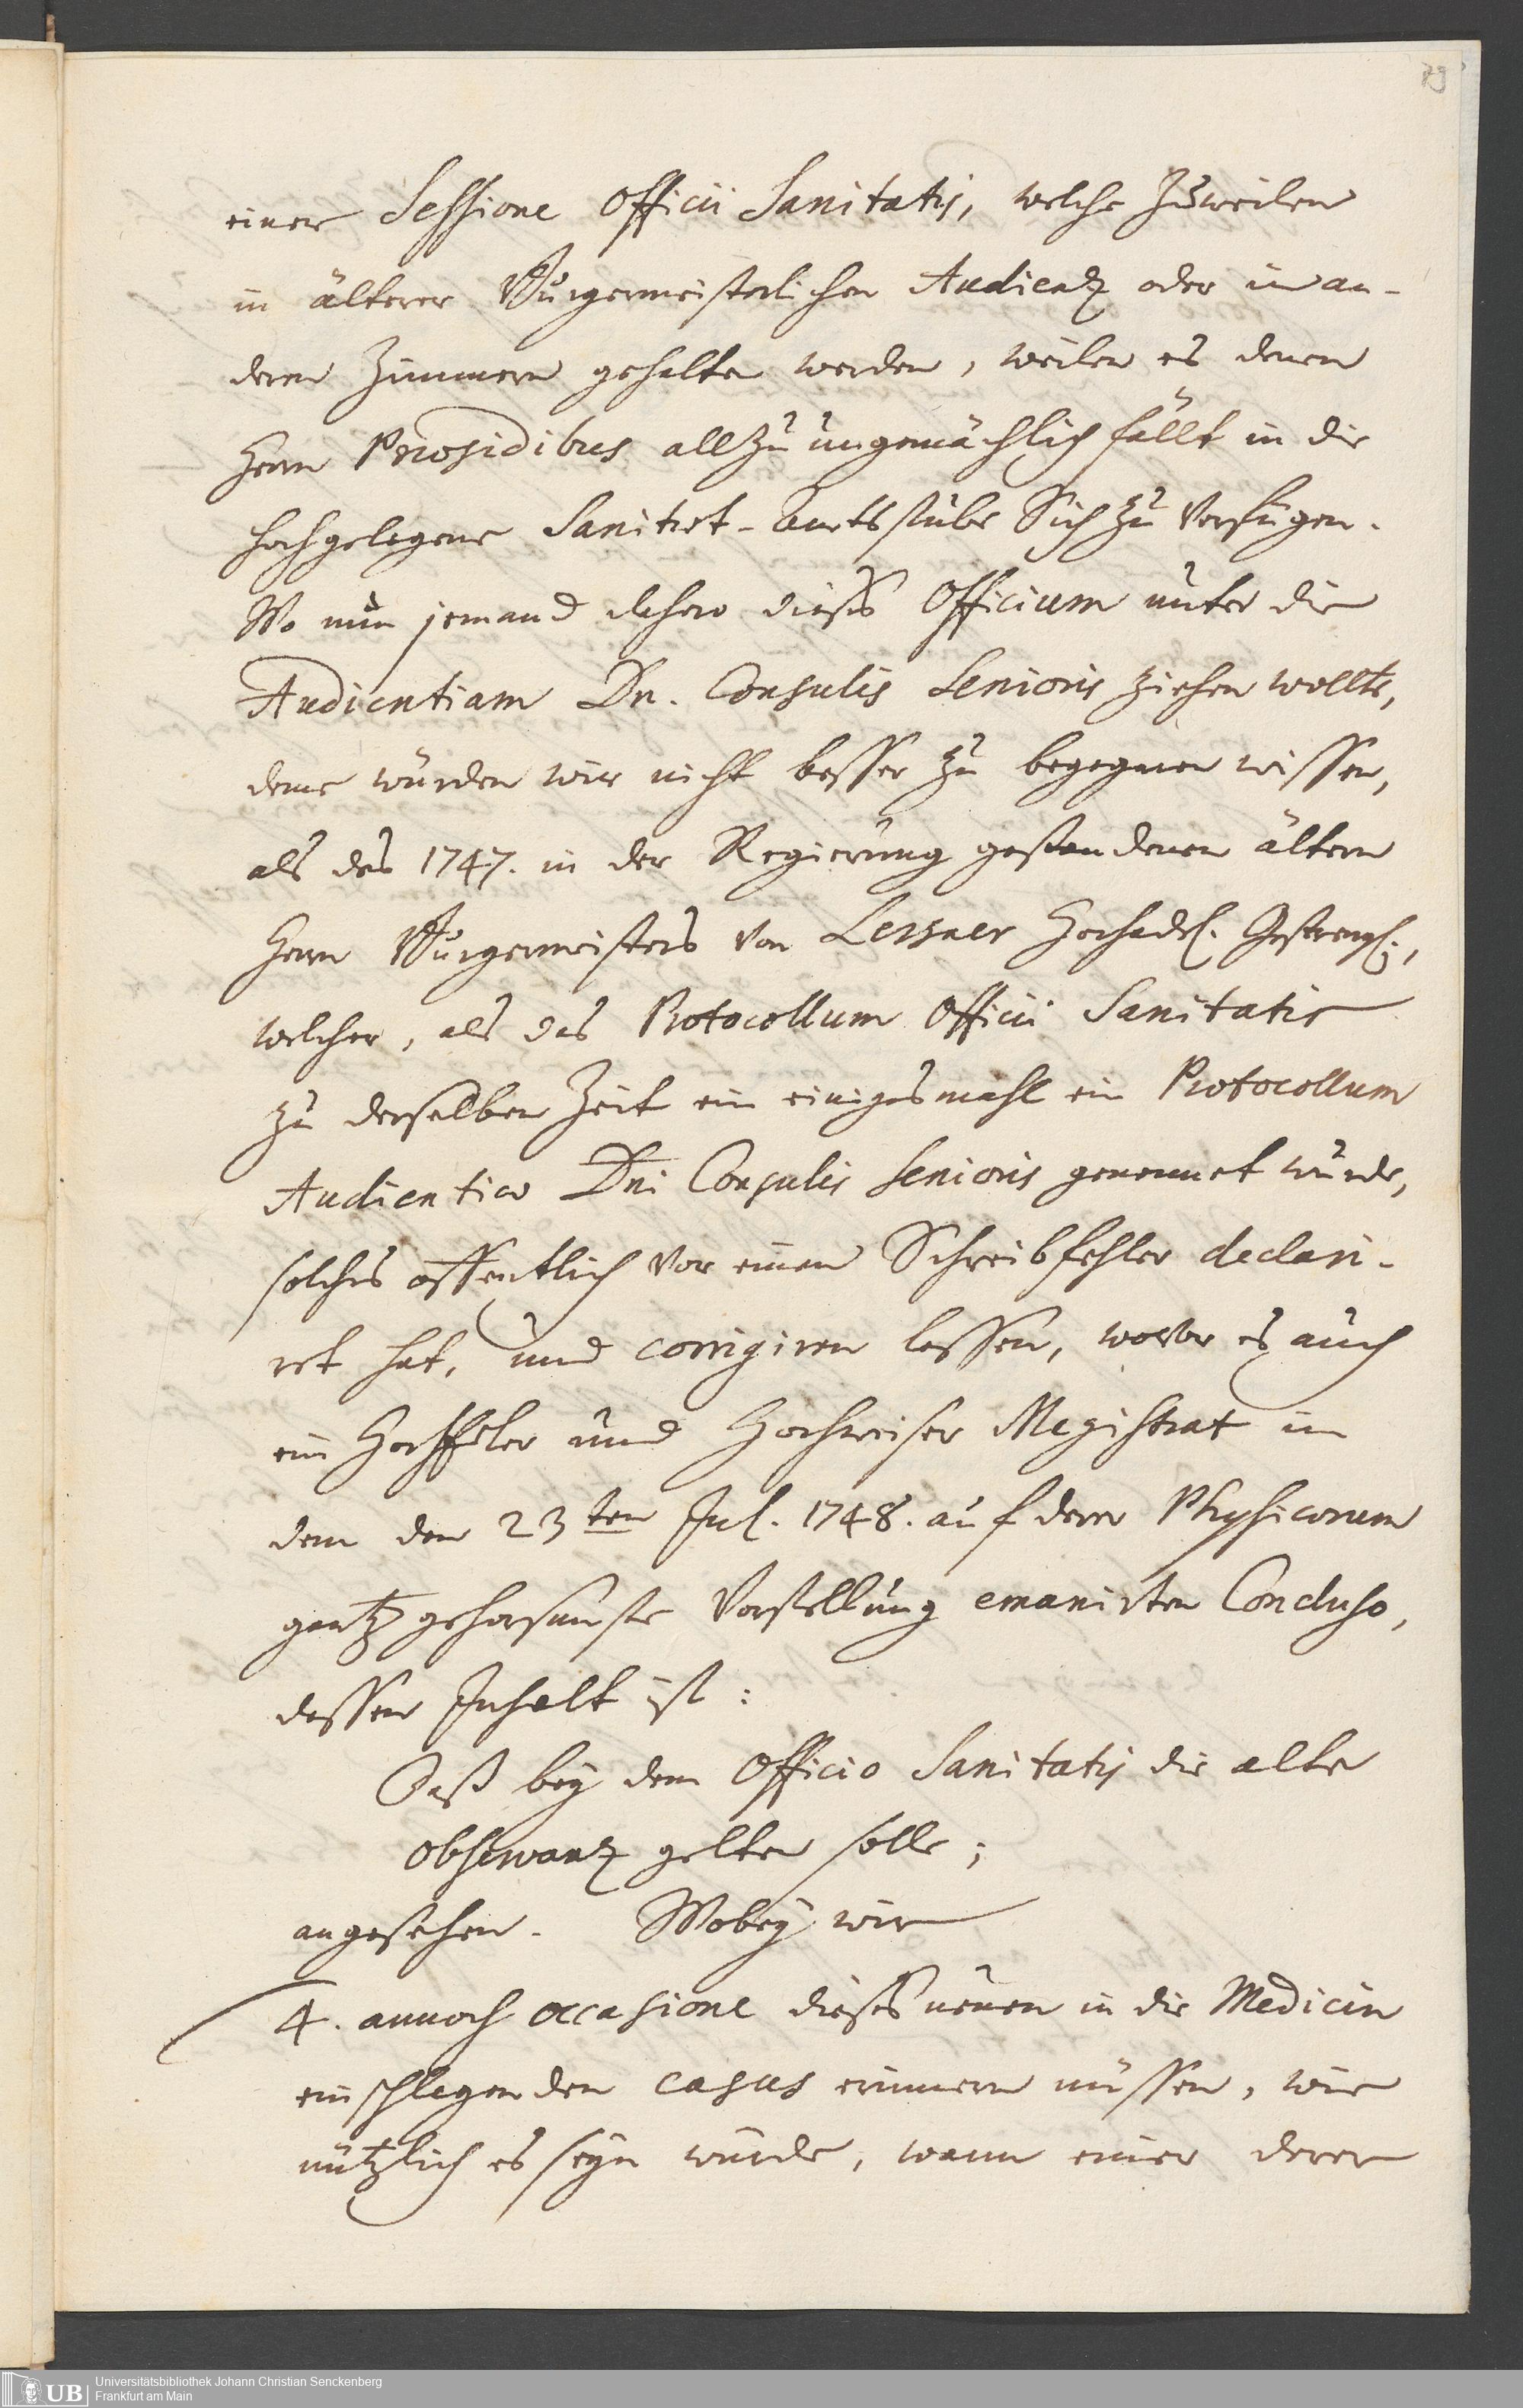 79
einer Sessione Officii Sanitatis, welche zuweilen
in älterer Burgermeisterlichen Audienz oder in an-
dern Zimmern gehalten werden, weilen es denen
Herrn Praesidibus allzu ungemächlich fällt in die
hochgelegene Sanitaet-Amtsstube Sich zu verfügen.
Wo nun jemand dahero dieses Officium unter die
Audientiam Dn. Consulis Senioris ziehen wollte,
deme würden wir nicht besser zu begegnen wissen,
als des 1747. in der Regierung gestandenen ältern
Herrn Burgermeisters von Lersner Hochadel. Gestrengl.,
welcher, als das Protocollum Officii Sanitatis
zu derselben Zeit ein einigesmahl ein Protocollum
Audientiae Dni Consulis Senioris genennet wurde,
solches öffentlich vor einen Schreibfehler declari-
ret hat, und corrigiren lassen, wovor es auch
ein HochEdler und Hochweiser Magistrat in
dem den 23ten Jul. 1748. auf derer Physicorum
gantz gehorsamste Vorstellung emanirten Concluso,
dessen Inhalt ist:
Daß bey dem Officio Sanitatis die alte
Observanz gelten solle;
angesehen. Wobey wir
4. annoch occasione dieses neuen in die Medicin
einschlagenden casus erinnern müssen, wie
nützlich es seyn würde, wann einer derer
UB Universitätsbibliothek Johann Christian Senckenberg
Frankfurt am Main